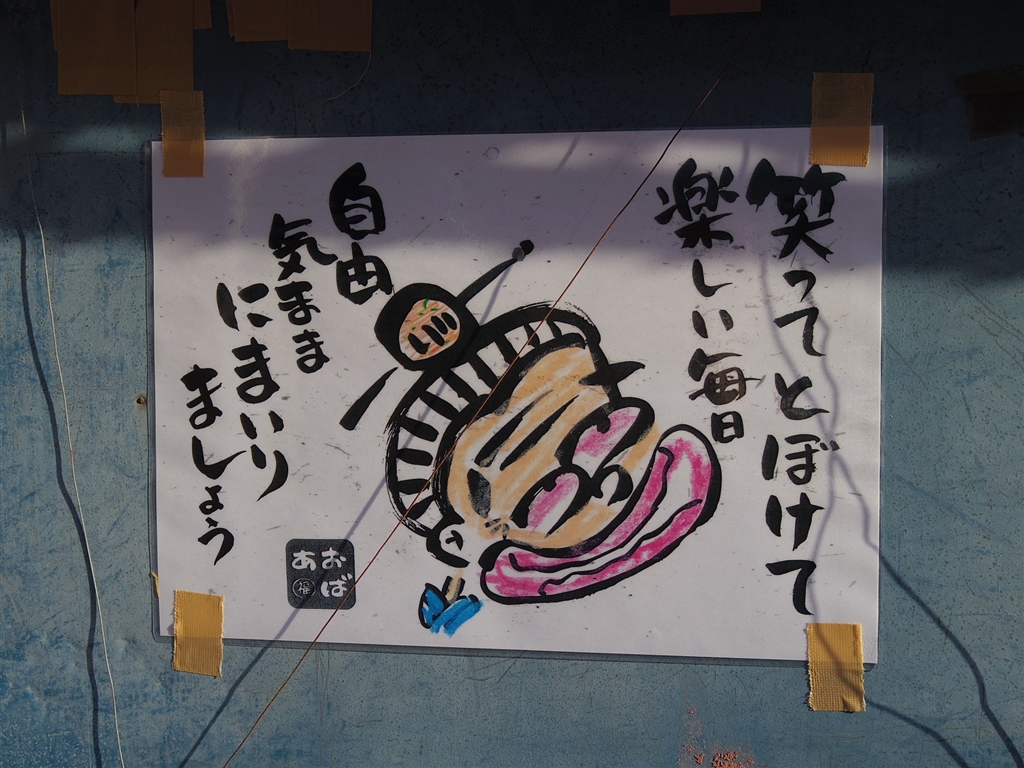 笑ってとぼけて
楽しい毎日
自由
気まま
にまいり
ましょう
おば
あ福